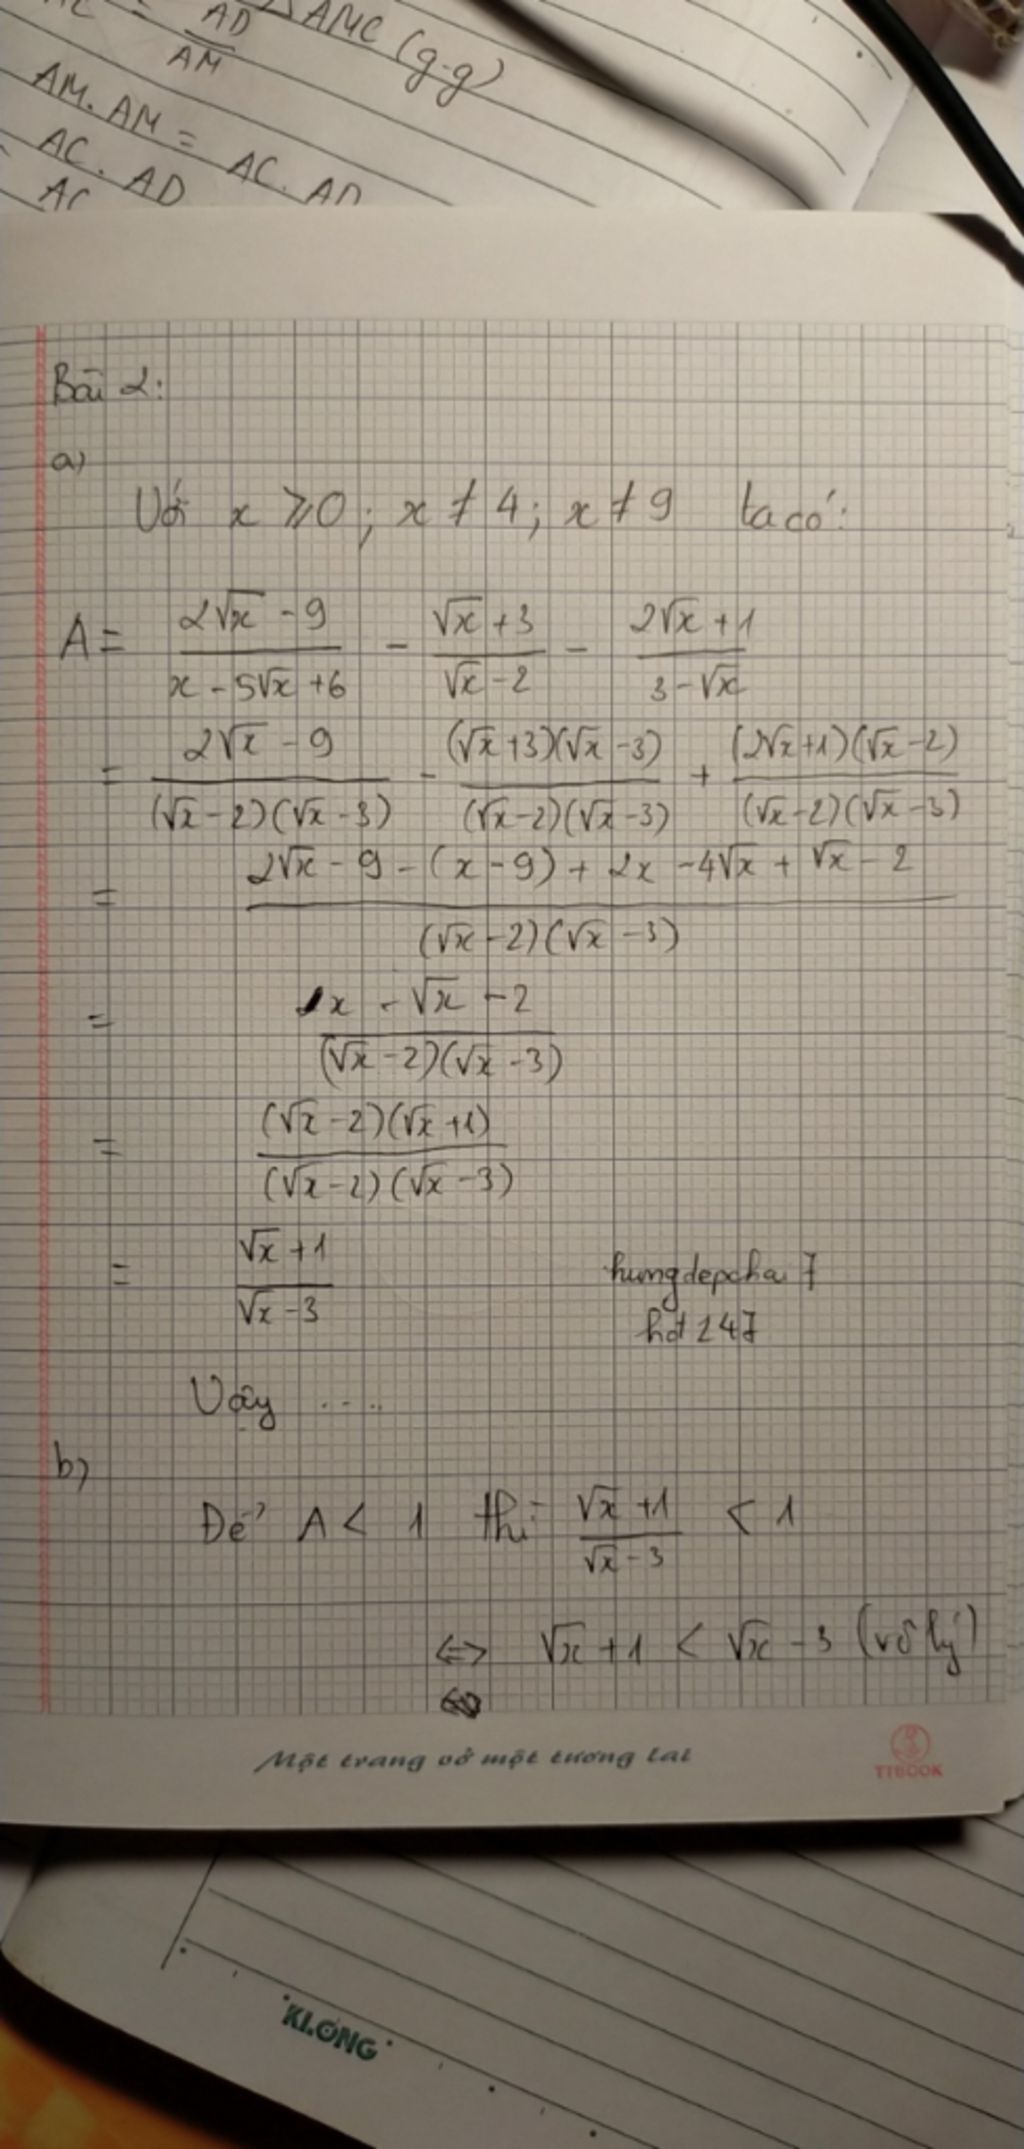 AD
AM
△AMC (g-g)
AM. AM = AC. AD
AC. AD
AC
Bài 2:
a)
Với x ≥ 0; x ≠ 4; x ≠ 9 ta có:
A = (2√x - 9)/(x - 5√x + 6) - (√x + 3)/(√x - 2) - (2√x + 1)/(3 - √x)
= (2√x - 9)/((√x - 2)(√x - 3)) - ((√x + 3)(√x - 3))/((√x - 2)(√x - 3)) + ((2√x + 1)(√x - 2))/((√x - 2)(√x - 3))
= (2√x - 9 - (x - 9) + 2x - 4√x + √x - 2)/((√x - 2)(√x - 3))
= (x - √x - 2)/((√x - 2)(√x - 3))
= ((√x - 2)(√x + 1))/((√x - 2)(√x - 3))
= (√x + 1)/(√x - 3)
hungdepchai7
hot247
Vậy ....
b)
Để A < 1 thì (√x + 1)/(√x - 3) < 1
⇔ √x + 1 < √x - 3 (vô lý)
Một trang vở một tương lai
TTBOOK
KLONG